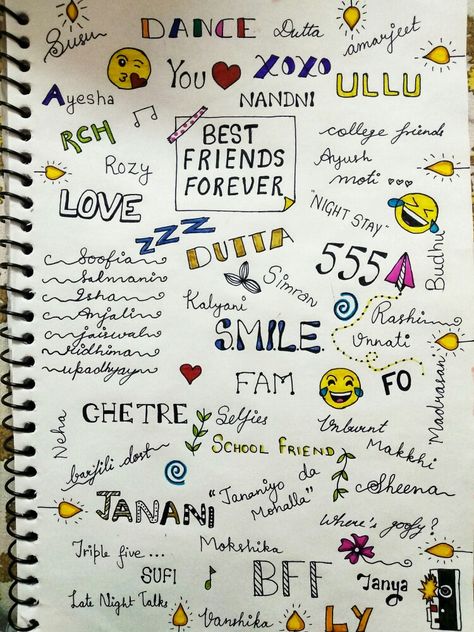 Susu
DANCE
Dutta
amarjeet
You
XOXO
Ayesha
NANDNI
ULLU
RCH
BEST
FRIENDS
FOREVER
college friends
Rozy
Ayush
moti
LOVE
"NIGHT STAY"
Budhu
ZZZ
DUTTA
555
Soofia
Salmani
Isha
Anjali
jaiswal
Ridhima
upadhyay
Simran
Kalyani
Rashi
Unnati
S.M.I.L.E.
FAM
FO
Madrasan
CHETRE
Selfies
Unburnt
Neha
SCHOOL FRIEND
Makkhi
barfili dost
Sheena
JANANI
"Jananiyo da
Mohalla"
Where's goofy?
Triple five ...
Mokshika
SUFI
BFF
Tanya
Late Night Talks
Vanshika
LY